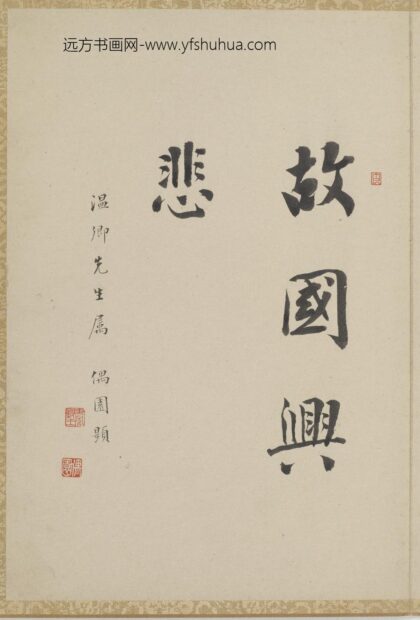 远方书画网-www.yfshuhua.com
故國興
悲
温卿先生属 偶園題